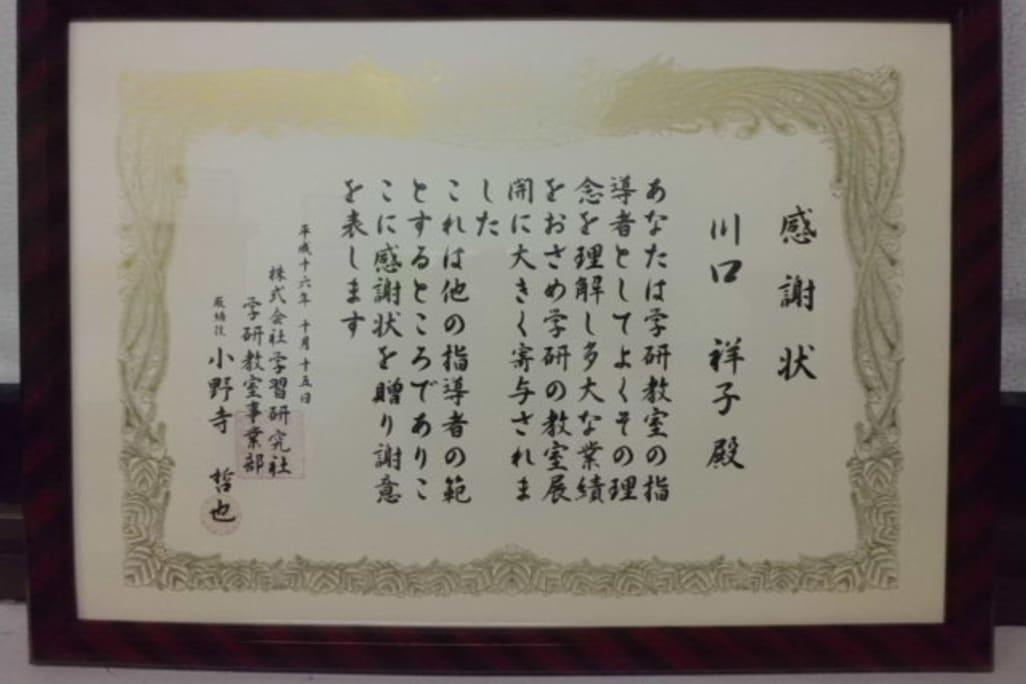 感謝状
川口 祥子 殿
あなたは学研教室の指
導者としてよくその理
念を理解し多大な業績
をおさめ学研の教室展
開に大きく寄与されま
した
これは他の指導者の範
とするところでありこ
こに感謝状を贈り謝意
を表します
平成十六年 十月十五日
株式会社学習研究社
学研教室事業部
取締役 小野寺 哲也